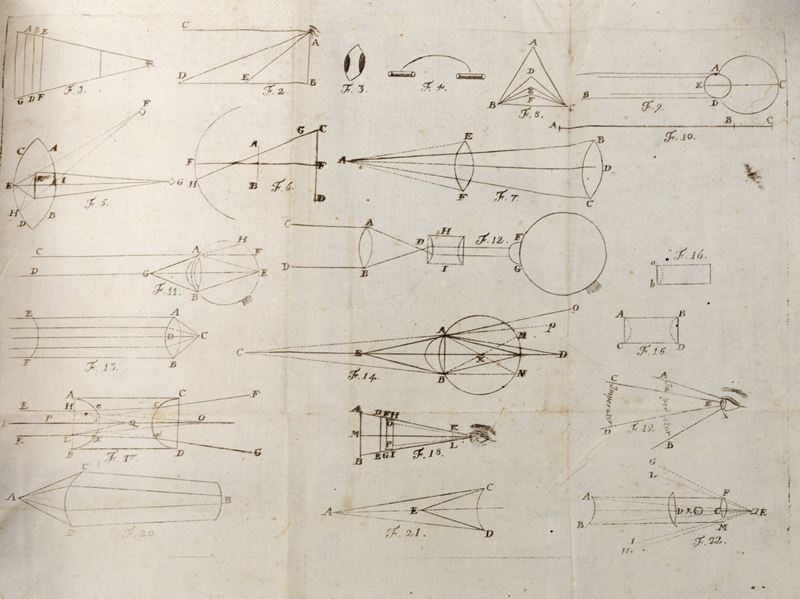 A B E
G D F
F. 1.
C
A
D E E
F. 2.
F. 3.
F. 4.
A
D
E
F
B C
F. 8.
A
E C
B D
F. 9.
A B C
F. 10.
F
C A
E K I G
H
D B
F. 5.
G C
A
F F
H B
D
F. 6.
A E B
D
F C
F. 7.
C A H
F
D G E
B
F. 11.
C A H F
D
D B I G
F. 12.
F. 16.
a
b
A B
C D
F. 15.
A
D C
B
F. 13.
O
A M P
C E K D
B N
F. 14.
A C
E H F
P O
E L
B D G
F. 17.
A D F H
K
M
P L
B E G I
F. 18.
C A
Imperator
Imperator
E
D I
B
F. 19.
C
A B
D
F. 20.
C
A E
D
F. 21.
G
L
A F
D K C E
B M
I
H
F. 22.